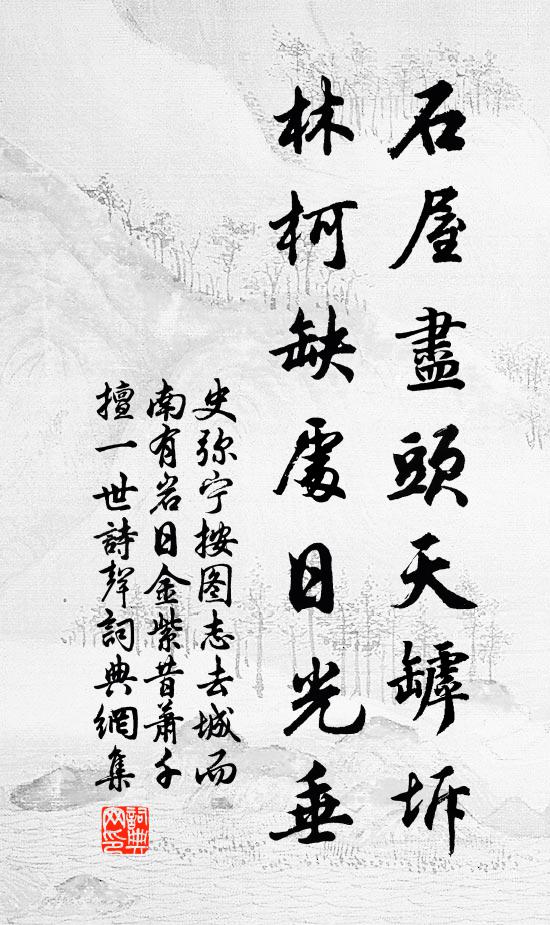 石屋盡頭天罅坼
林柯缺處日光垂
史弥宁按图志去城而
南有岩日金紫昔蕭千
擅一世詩聲詞典網集
詞典网印